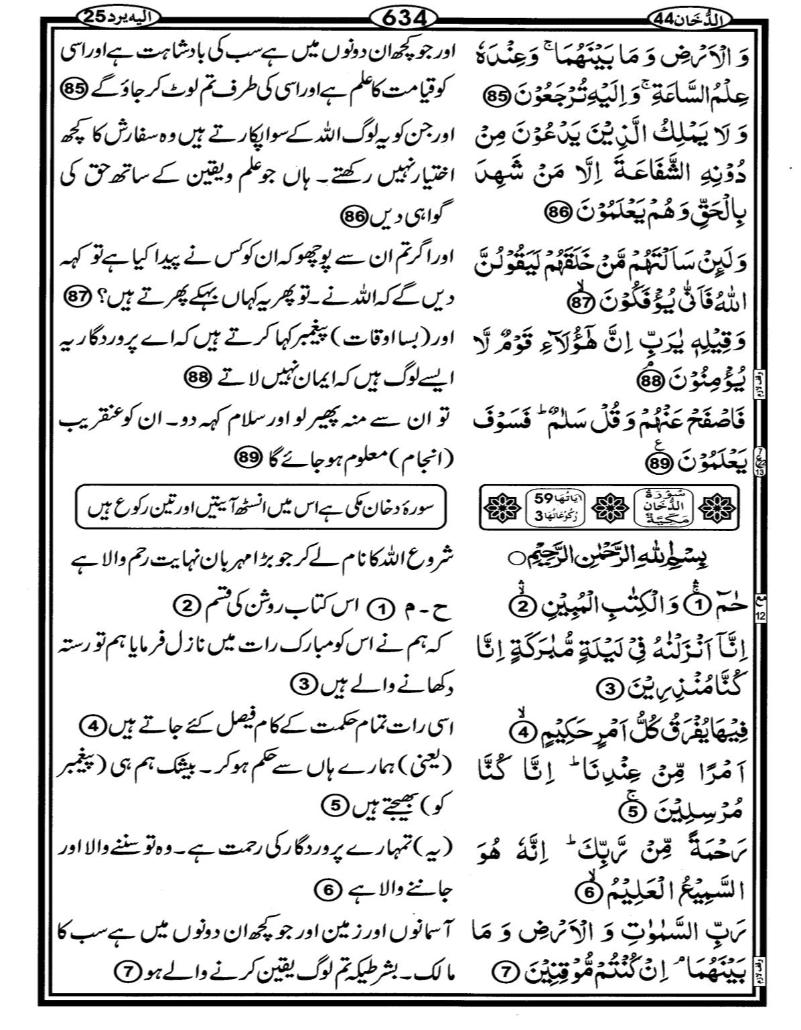 الدُّخَان44
634
الیه یرد25
وَ الْاَرْضِ وَ مَا بَيْنَهُمَا ۚ وَعِنْدَهٗ
عِلْمُ السَّاعَةِ ۚ وَاِلَيْهِ تُرْجَعُوْنَ 85
وَ لَا يَمْلِكُ الَّذِيْنَ يَدْعُوْنَ مِنْ
دُوْنِهِ الشَّفَاعَةَ اِلَّا مَنْ شَهِدَ
بِالْحَقِّ وَهُمْ يَعْلَمُوْنَ 86
وَلَىِٕنْ سَاَلْتَهُمْ مَّنْ خَلَقَهُمْ لَيَقُوْلُنَّ
اللّٰهُ فَاَنّٰى يُؤْفَكُوْنَ ۙ 87
وَقِيْلِهٖ يٰرَبِّ اِنَّ هٰٓؤُلَآءِ قَوْمٌ لَّا
يُؤْمِنُوْنَ ۘ 88
فَاصْفَحْ عَنْهُمْ وَ قُلْ سَلٰمٌ ؕ فَسَوْفَ
يَعْلَمُوْنَ 89
سُوْرَةُ
الدُّخَان
مَكِّيَّةٌ
اٰیَاتُهَا 59
رُكُوْعَاتُهَا 3
بِسْمِ اللّٰهِ الرَّحْمٰنِ الرَّحِيْمِ
حٰمٓ ۚ 1 وَ الْكِتٰبِ الْمُبِيْنِ ۙ 2
اِنَّآ اَنْزَلْنٰهُ فِيْ لَيْلَةٍ مُّبٰرَكَةٍ اِنَّا
كُنَّا مُنْذِرِيْنَ 3
فِيْهَا يُفْرَقُ كُلُّ اَمْرٍ حَكِيْمٍ ۙ 4
اَمْرًا مِّنْ عِنْدِنَا ؕ اِنَّا كُنَّا
مُرْسِلِيْنَ ۚ 5
رَحْمَةً مِّنْ رَّبِّكَ ؕ اِنَّهٗ هُوَ
السَّمِيْعُ الْعَلِيْمُ ۙ 6
رَبِّ السَّمٰوٰتِ وَ الْاَرْضِ وَ مَا
بَيْنَهُمَا ۘ اِنْ كُنْتُمْ مُّوْقِنِيْنَ 7
اور جو کچھ ان دونوں میں ہے سب کی بادشاہت ہے اور اسی
کو قیامت کا علم ہے اور اسی کی طرف تم لوٹ کر جاؤ گے 85
اور جن کو یہ لوگ اللہ کے سوا پکارتے ہیں وہ سفارش کا کچھ
اختیار نہیں رکھتے۔ ہاں جو علم ویقین کے ساتھ حق کی
گواہی دیں 86
اور اگر تم ان سے پوچھو کہ ان کو کس نے پیدا کیا ہے تو کہہ
دیں گے کہ اللہ نے۔ تو پھر یہ کہاں بہکے پھرتے ہیں؟ 87
اور (بسا اوقات) پیغمبر کہا کرتے ہیں کہ اے پروردگار یہ
ایسے لوگ ہیں کہ ایمان نہیں لاتے 88
تو ان سے منہ پھیر لو اور سلام کہہ دو۔ ان کو عنقریب
(انجام) معلوم ہو جائے گا 89
سورۂ دخان مکی ہے اس میں انسٹھ آیتیں اور تین رکوع ہیں
شروع اللہ کا نام لے کر جو بڑا مہربان نہایت رحم والا ہے
ح۔ م 1 اس کتاب روشن کی قسم 2
کہ ہم نے اس کو مبارک رات میں نازل فرمایا ہم تو رستہ
دکھانے والے ہیں 3
اسی رات تمام حکمت کے کام فیصل کئے جاتے ہیں 4
(یعنی) ہمارے ہاں سے حکم ہو کر۔ بیشک ہم ہی (پیغمبر
کو) بھیجتے ہیں 5
(یہ) تمہارے پروردگار کی رحمت ہے۔ وہ تو سننے والا اور
جاننے والا ہے 6
آسمانوں اور زمین اور جو کچھ ان دونوں میں ہے سب کا
مالک۔ بشرطیکہ تم لوگ یقین کرنے والے ہو 7